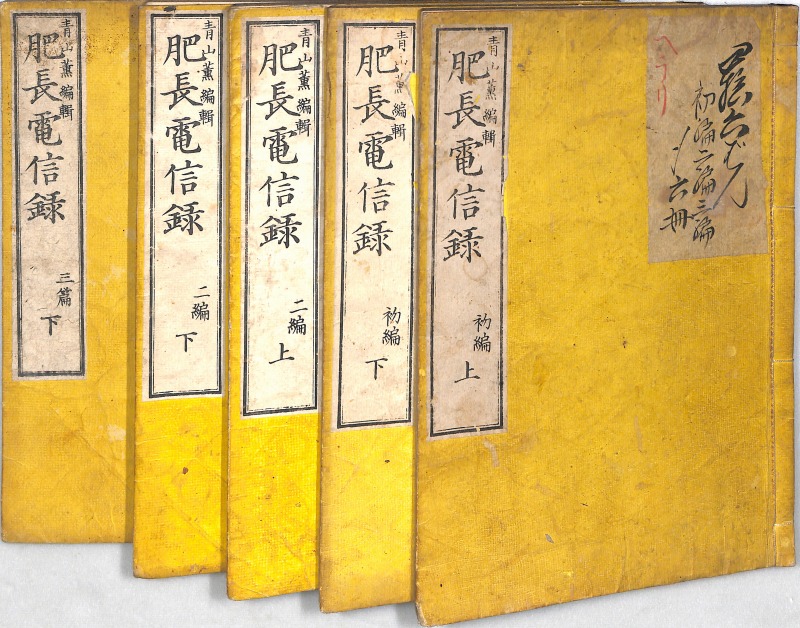 初編二編三編
六冊
青山薫編輯
肥長電信録
初編
上
青山薫編輯
肥長電信録
初編
下
青山薫編輯
肥長電信録
二編
上
青山薫編輯
肥長電信録
二編
下
青山薫編輯
肥長電信録
三篇
下